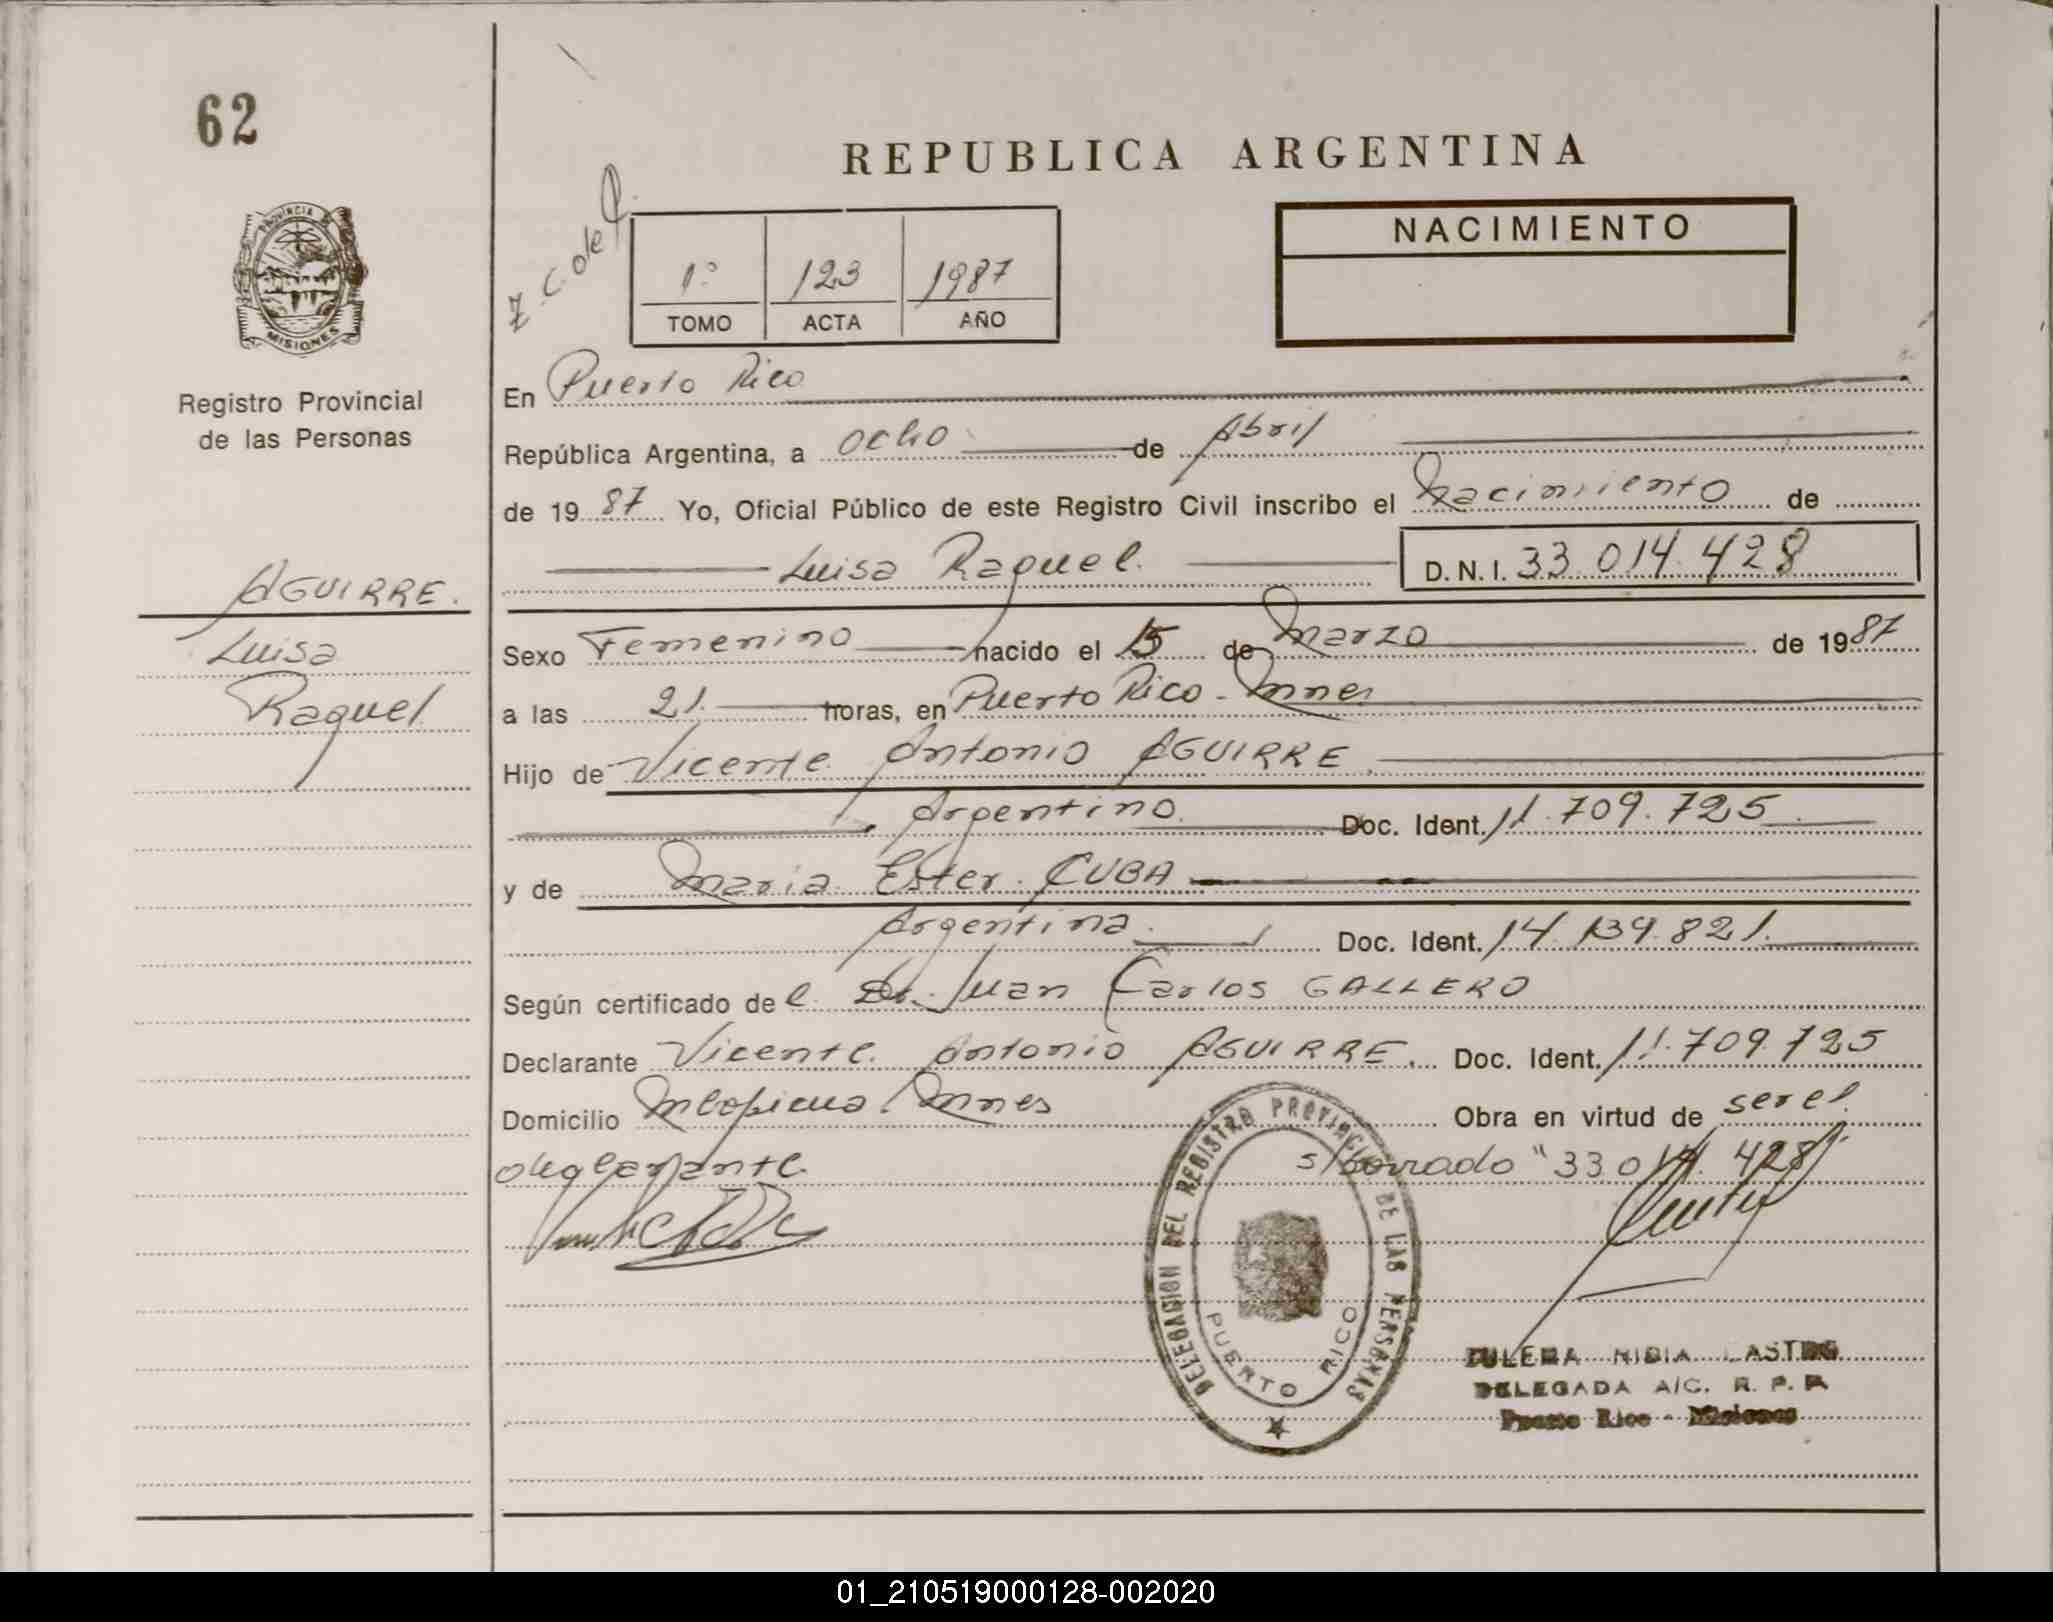 62
REPUBLICA ARGENTINA
PROVINCIA
MISIONES
Registro Provincial
de las Personas
1º 123 1987
TOMO ACTA AÑO
NACIMIENTO
En Puerto Rico
República Argentina, a ocho de Abril
de 1987 Yo, Oficial Público de este Registro Civil inscribo el Nacimiento de
Luisa Raquel. D.N.I. 33.014.428
AGUIRRE.
Luisa
Raquel
Sexo Femenino nacido el 15 de Marzo de 1987
a las 21. horas, en Puerto Rico - Mnes
Hijo de Vicente Antonio AGUIRRE
Argentino. Doc. Ident. 11.709.725
y de Maria Ester CUBA
Argentina. Doc. Ident. 14.139.821.
Según certificado del Dr. Juan Carlos GALLERO
Declarante Vicente Antonio AGUIRRE. Doc. Ident. 11.709.725
Domicilio Mnes Obra en virtud de ser el
declarante. s/borrado "33.014.428"
DELEGACION DEL REGISTRO PROVINCIAL DE LAS PERSONAS
PUERTO RICO
NIDIA
DELEGADA A/C. R. P. P.
Puerto Rico - Misiones
01_210519000128-002020